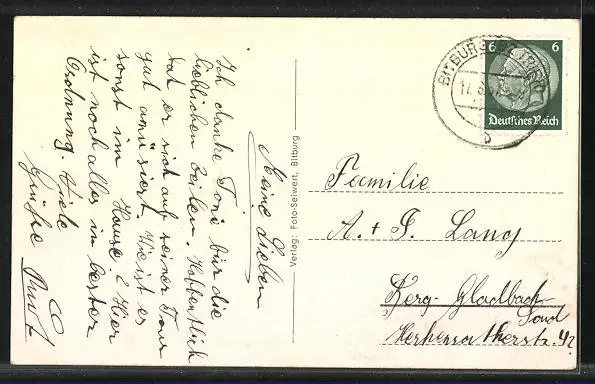 Meine Lieben
Ich danke Toni für die
lieblichen Zeilen. Hoffentlich
hat er sich auf seiner Tour
gut amüsiert. Wie ist es
sonst im Hause? Hier
ist noch alles in bester
Ordnung. Viele
Grüsse
Verlag: Foto-Seiwert, Bitburg
BITBURG
6 6
Deutsches Reich
b
Familie
A. + F. Lang
Berg-Gladbach
Sand
Herkenratherstr. 42